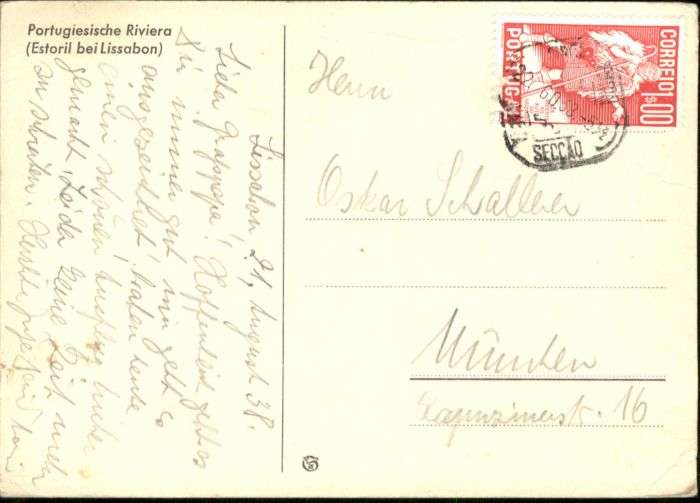 Portugiesische Riviera
(Estoril bei Lissabon)
Lissabon 21. August 38.
Lieber Grosspapa! Hoffentlich geht es
dir immer gut, mir geht es
ausgezeichnet, haben heute
einen schönen Ausflug hieher
gemacht, leider keine Zeit mehr
zu baden. Herzliche Grüsse
CORREIO 1$00
PORTUGAL
SECÇÃO
Herrn
Oskar Schaller
München
Kapuzinerstr. 16